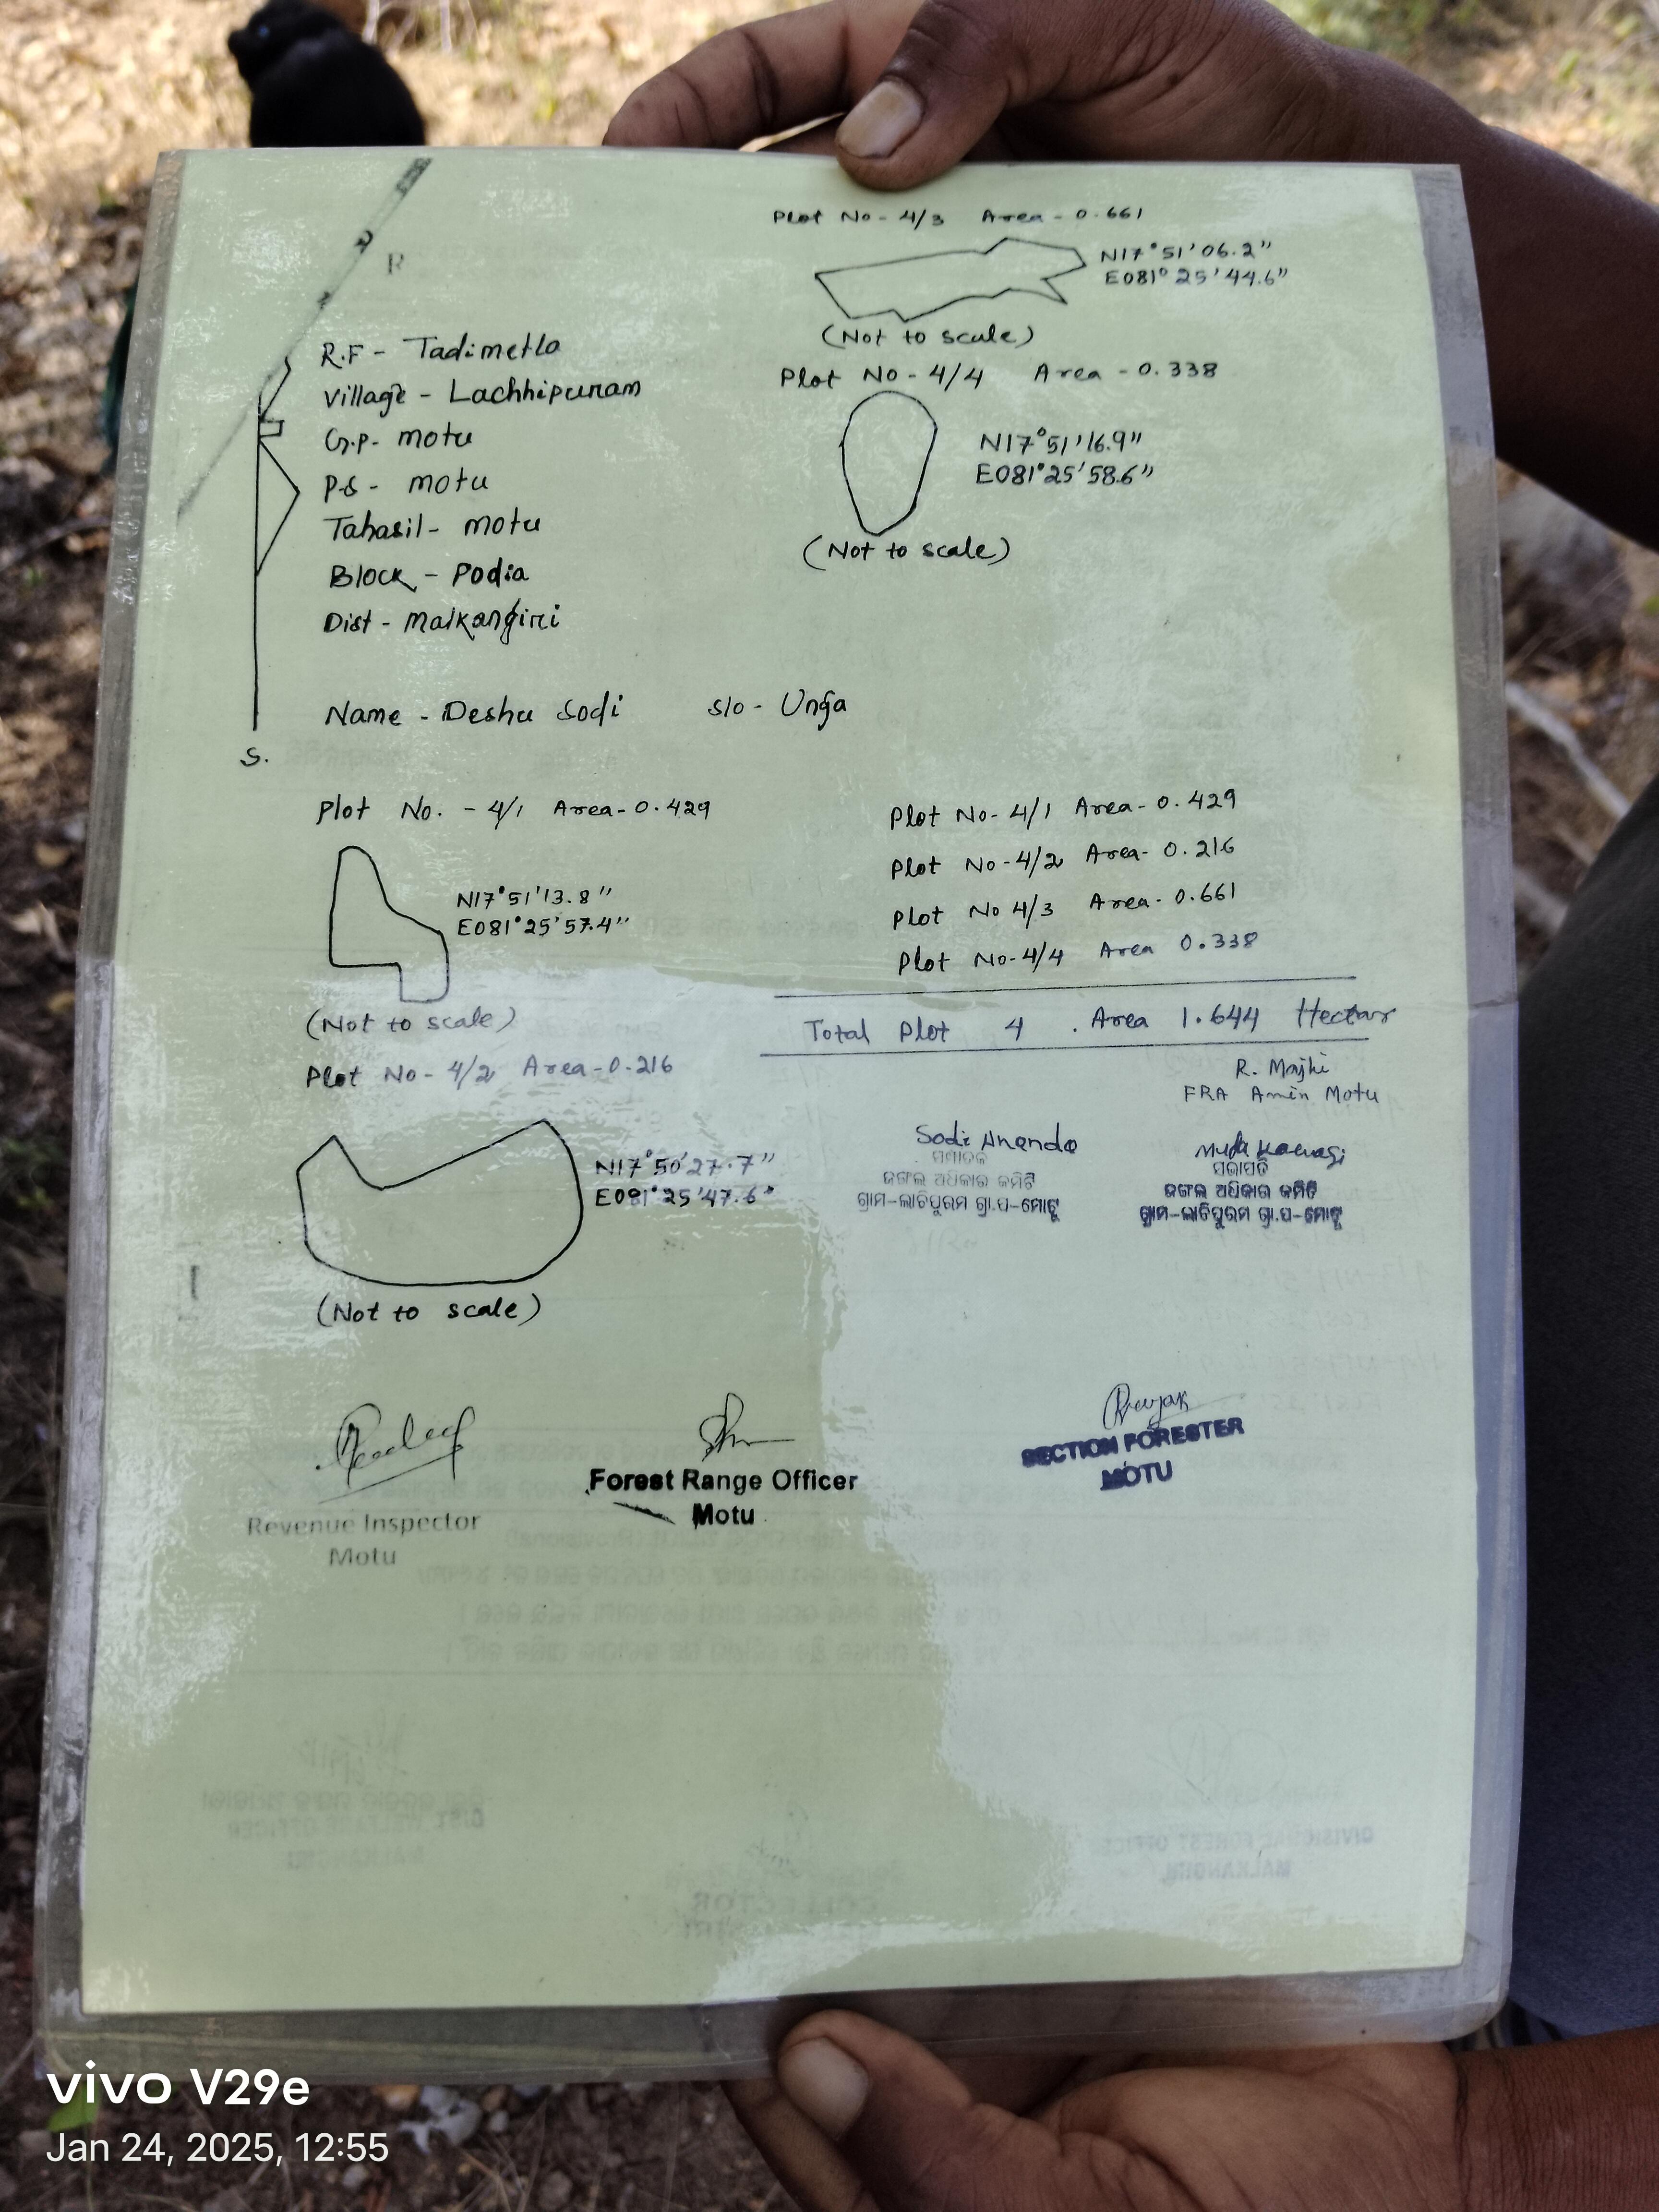 Plot No - 4/3 Area - 0.661
N17°51'06.2"
E081°25'44.6"
(Not to scale)
Plot No - 4/4 Area - 0.338
N17°51'16.9"
E081°25'58.6"
(Not to scale)
R.F - Tadimetla
Village - Lachhipuram
G.P - motu
P.S - motu
Tahasil - motu
Block - Podia
Dist - Malkangiri
Name - Deshu Sodi S/o - Unga
S.
Plot No. - 4/1 Area - 0.429
N17°51'13.8"
E081°25'57.4"
(Not to scale)
Plot No - 4/2 Area - 0.216
N17°50'27.7"
E081°25'47.6"
(Not to scale)
Plot No - 4/1 Area - 0.429
Plot No - 4/2 Area - 0.216
Plot No 4/3 Area - 0.661
Plot No - 4/4 Area 0.338
Total Plot 4 . Area 1.644 Hectar
R. Majhi
FRA Amin Motu
Sodi Ananda
ସମ୍ପାଦକ
ଜଙ୍ଗଲ ଅଧିକାର କମିଟି
ଗ୍ରାମ-ଲାଚିପୁରମ ଗ୍ରା.ପ-ମୋଟୁ
ସଭାପତି
ଜଙ୍ଗଲ ଅଧିକାର କମିଟି
ଗ୍ରାମ-ଲାଚିପୁରମ ଗ୍ରା.ପ-ମୋଟୁ
Revenue Inspector
Motu
Forest Range Officer
Motu
SECTION FORESTER
MOTU
vivo V29e
Jan 24, 2025, 12:55